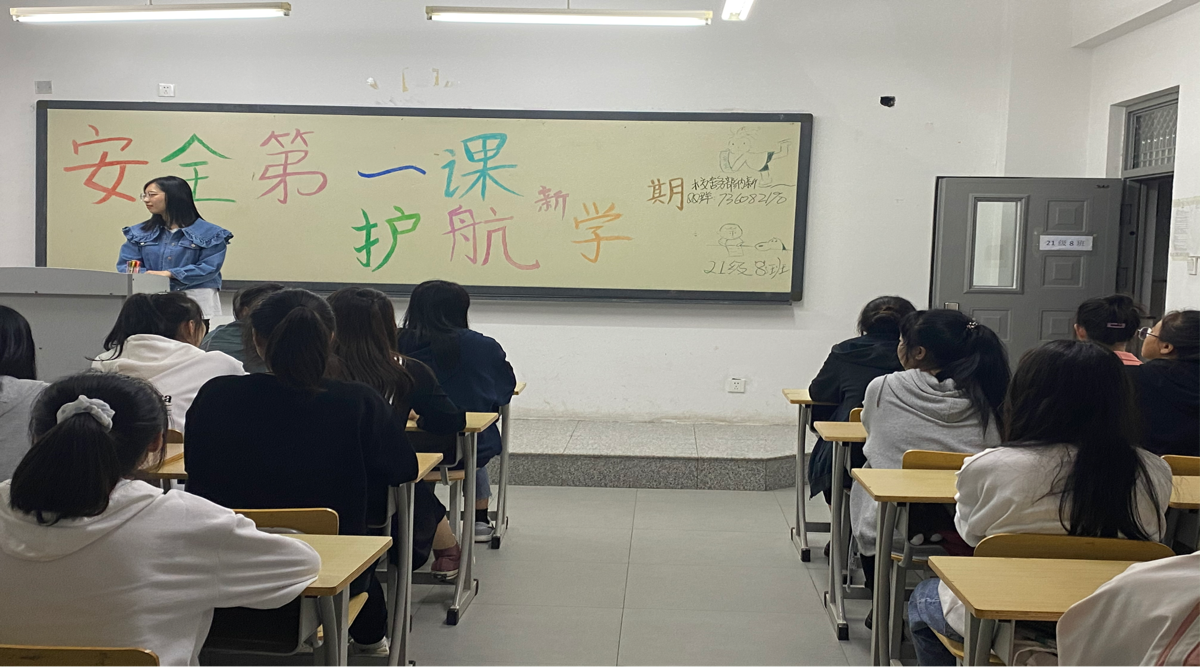 安全第一课
护航新学期
QQ群 736082170
21级8班
21级8班